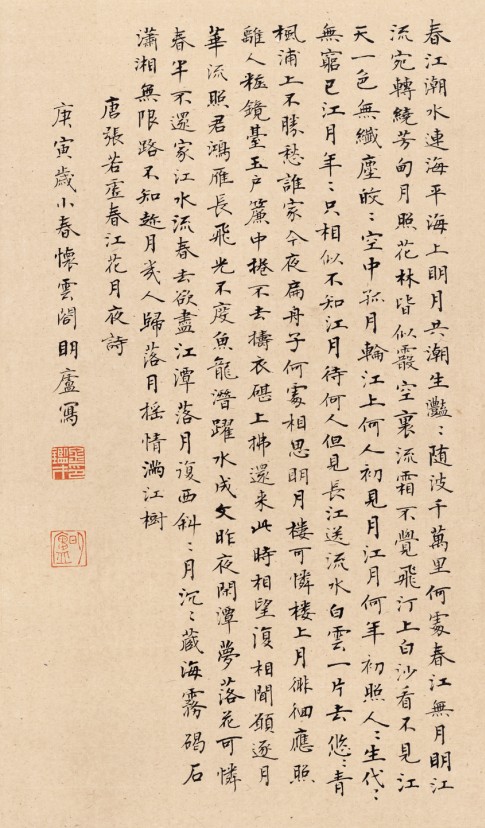 春江潮水連海平海上明月共潮生灩:随波千萬里何處春江無月明江
流宛轉繞芳甸月照花林皆似霰空裏流霜不覺飛汀上白沙看不見江
天一色無纖塵皎:空中孤月輪江上何人初見月江月何年初照人:生代:
無窮已江月年:只相似不知江月待何人但見長江送流水白雲一片去悠:青
楓浦上不勝愁誰家今夜扁舟子何處相思明月樓可憐楼上月徘徊應照
離人粧鏡臺玉户簾中捲不去擣衣碪上拂還来此時相望復相聞願逐月
華流照君鴻雁長飛光不度魚龍潛躍水成文昨夜閑潭夢落花可憐
春半不還家江水流春去欲盡江潭落月復西斜:月沉:蔵海霧碣石
瀟湘無限路不知趂月幾人歸落月摇情滿江樹
唐張若虛春江花月夜詩
庚寅歲小春懷雲閣明廬寫